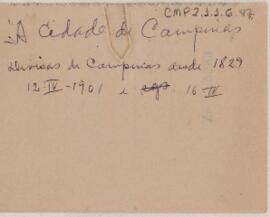 CMP2.1.1.6.87
"A Cidade de Campinas
Divisas de Campinas desde 1829
12-IV-1901 e 16 IV